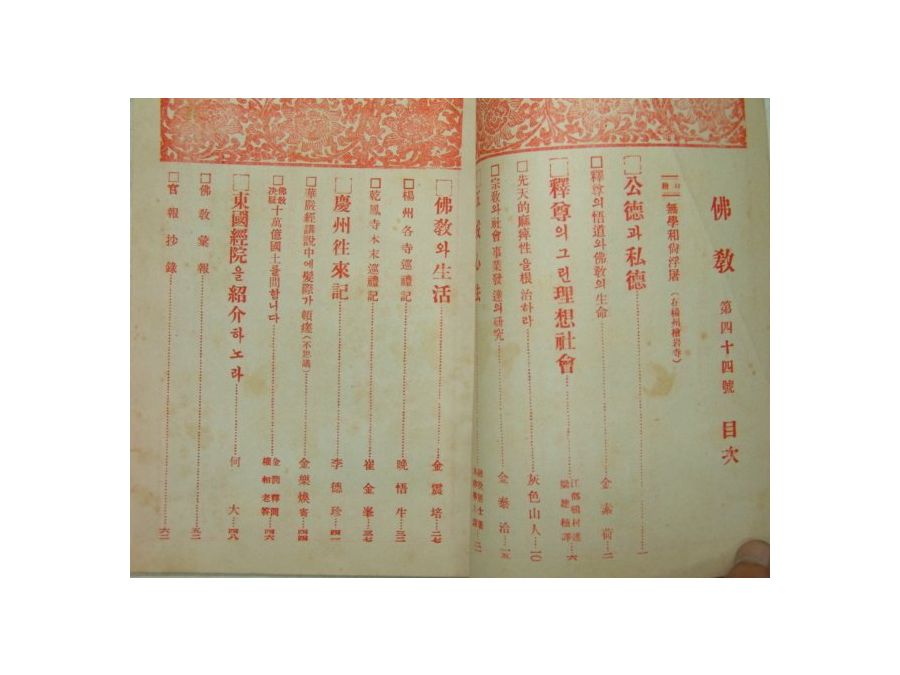 佛敎 第四十四號 目次
無學和尙浮屠(在楊州檜岩寺)
公德과 私德 一
釋尊의 悟道와 佛敎의 生命 金素荷 二
釋尊의 그린 理想社會 梁建植 譯 六
先天的痲痺性을 根治하라 灰色山人 一〇
宗敎와 社會事業發達의 硏究 金泰洽 一五
佛敎와 生活 金震培 二七
楊州各寺巡禮記 晚悟生 三三
乾鳳寺本末巡禮記 崔金峯 三七
慶州往來記 李德珍 四一
華嚴經講說中에 髮際가 頓瘥(不思議) 金樂煥 寄 四四
佛敎決疑 十萬億國土를 問합니다 權相老 答 四六
東國經院을 紹介하노라 何大 四八
佛敎彙報 五二
官報抄錄 六二